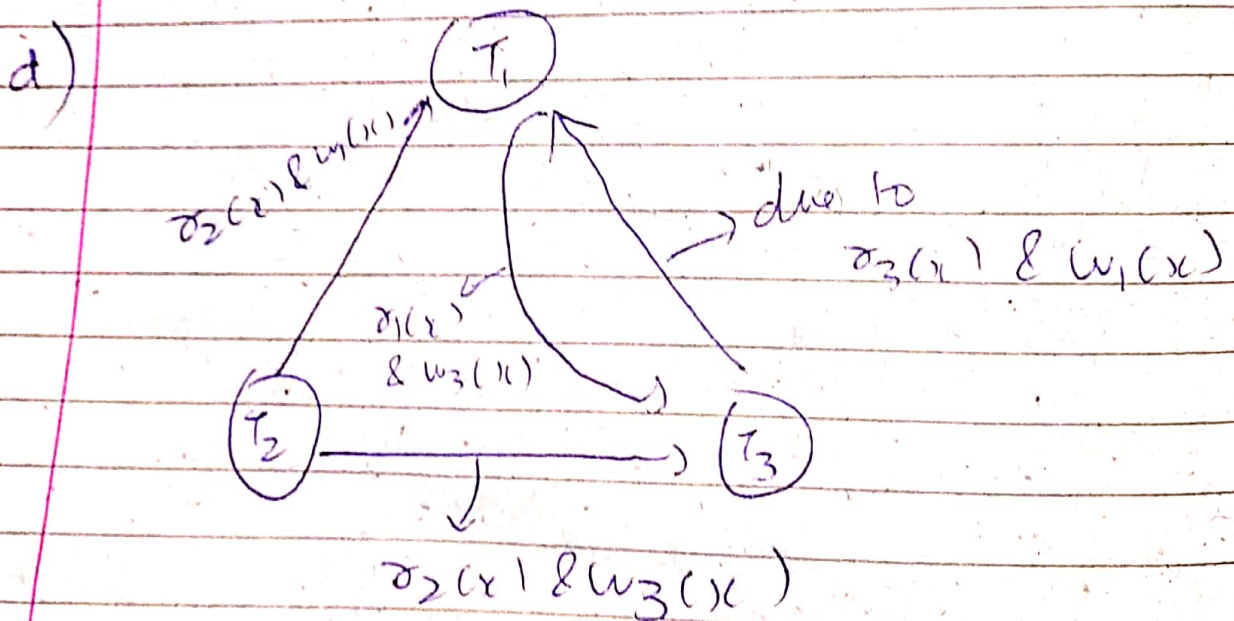 d)
T₁
r₂(x) & w₁(x)
due to
r₃(x) & w₁(x)
r₁(x)
& w₃(x)
T₂
T₃
r₂(x) & w₃(x)